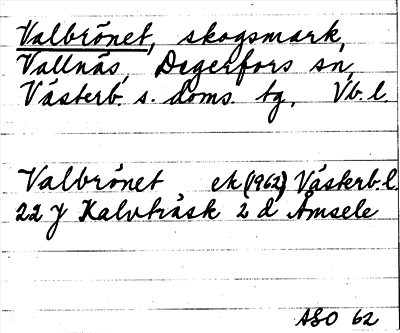 Valbrönet, skogsmark,
Vallnäs, Degerfors sn,
Västerb. s. doms. tg, Vb. l.
Valbrönet ek (1962) Västerb. l.
22 J Kalvträsk 2 d Åmsele
ASO 62